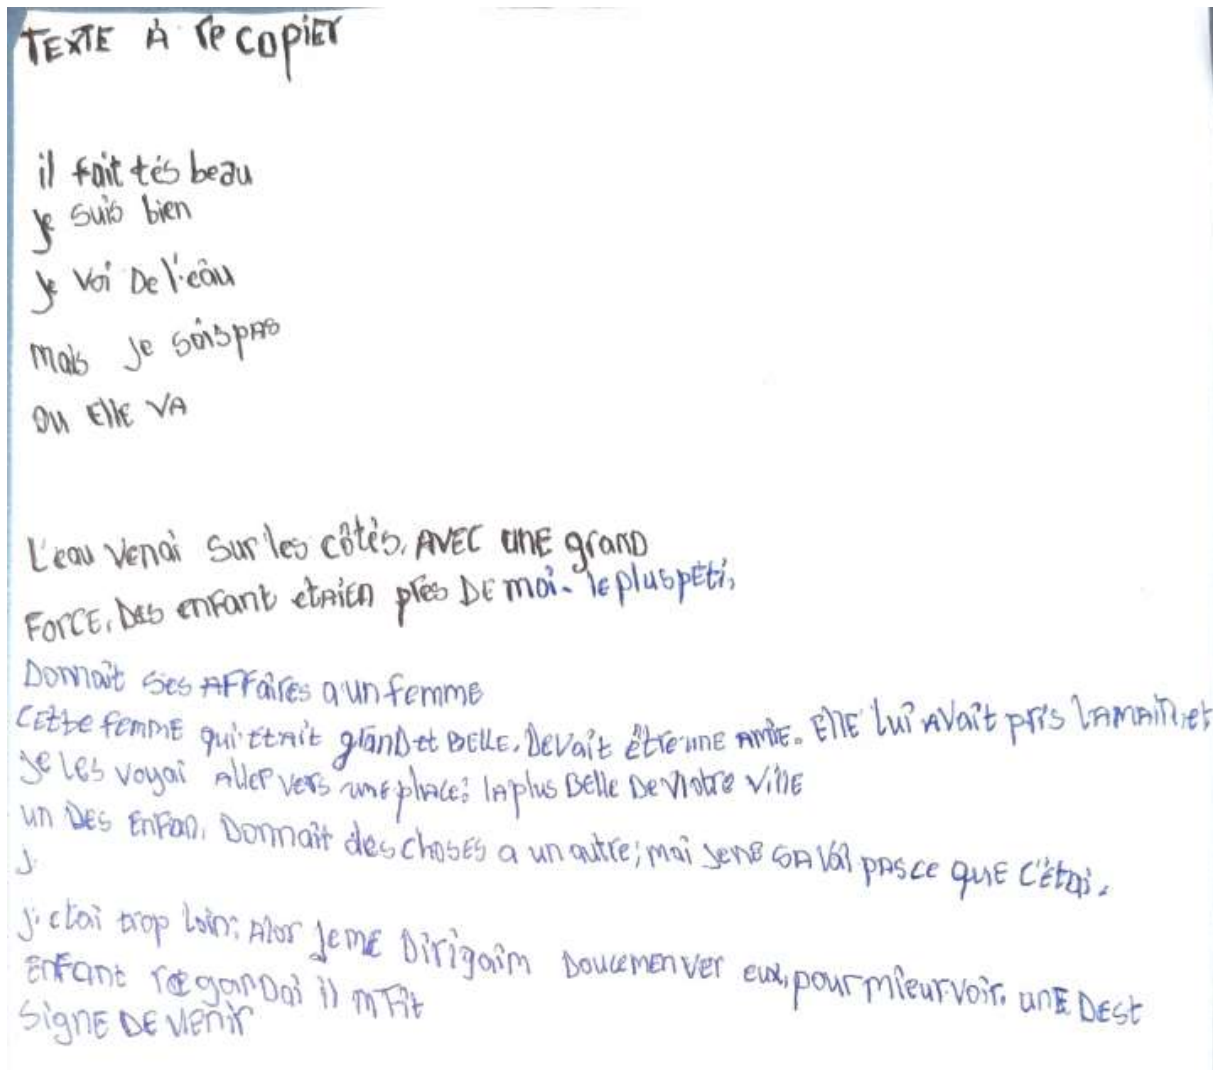 TEXTE À recopiEr
il fait tés beau
je suis bien
je voi De l'eau
mais je sais pas
ou EllE VA
L'eau venai sur les côtés, AVEC UNE granD
ForCE, Des enfant etaiEn près DE moi. le plus pEti,
Donnait ses AFFaires a un femme
CEtte femmE qui était granD et BELLE, Devait être une AmiE. EllE lui Avait pris LA mAin, et
je les voyai Aller vers une place; lA plus Belle De Notre villE
un DEs EnFan, Donnait des chosEs a un autre; mai je ne SAVai pAs ce quE C'étai,
J.
j'etai trop loin; Alor je me Dirigaim DoucemenVer eux, pour mieur voir, unE DEst
EnFant regarDai il m Fit
signE DE VEnir